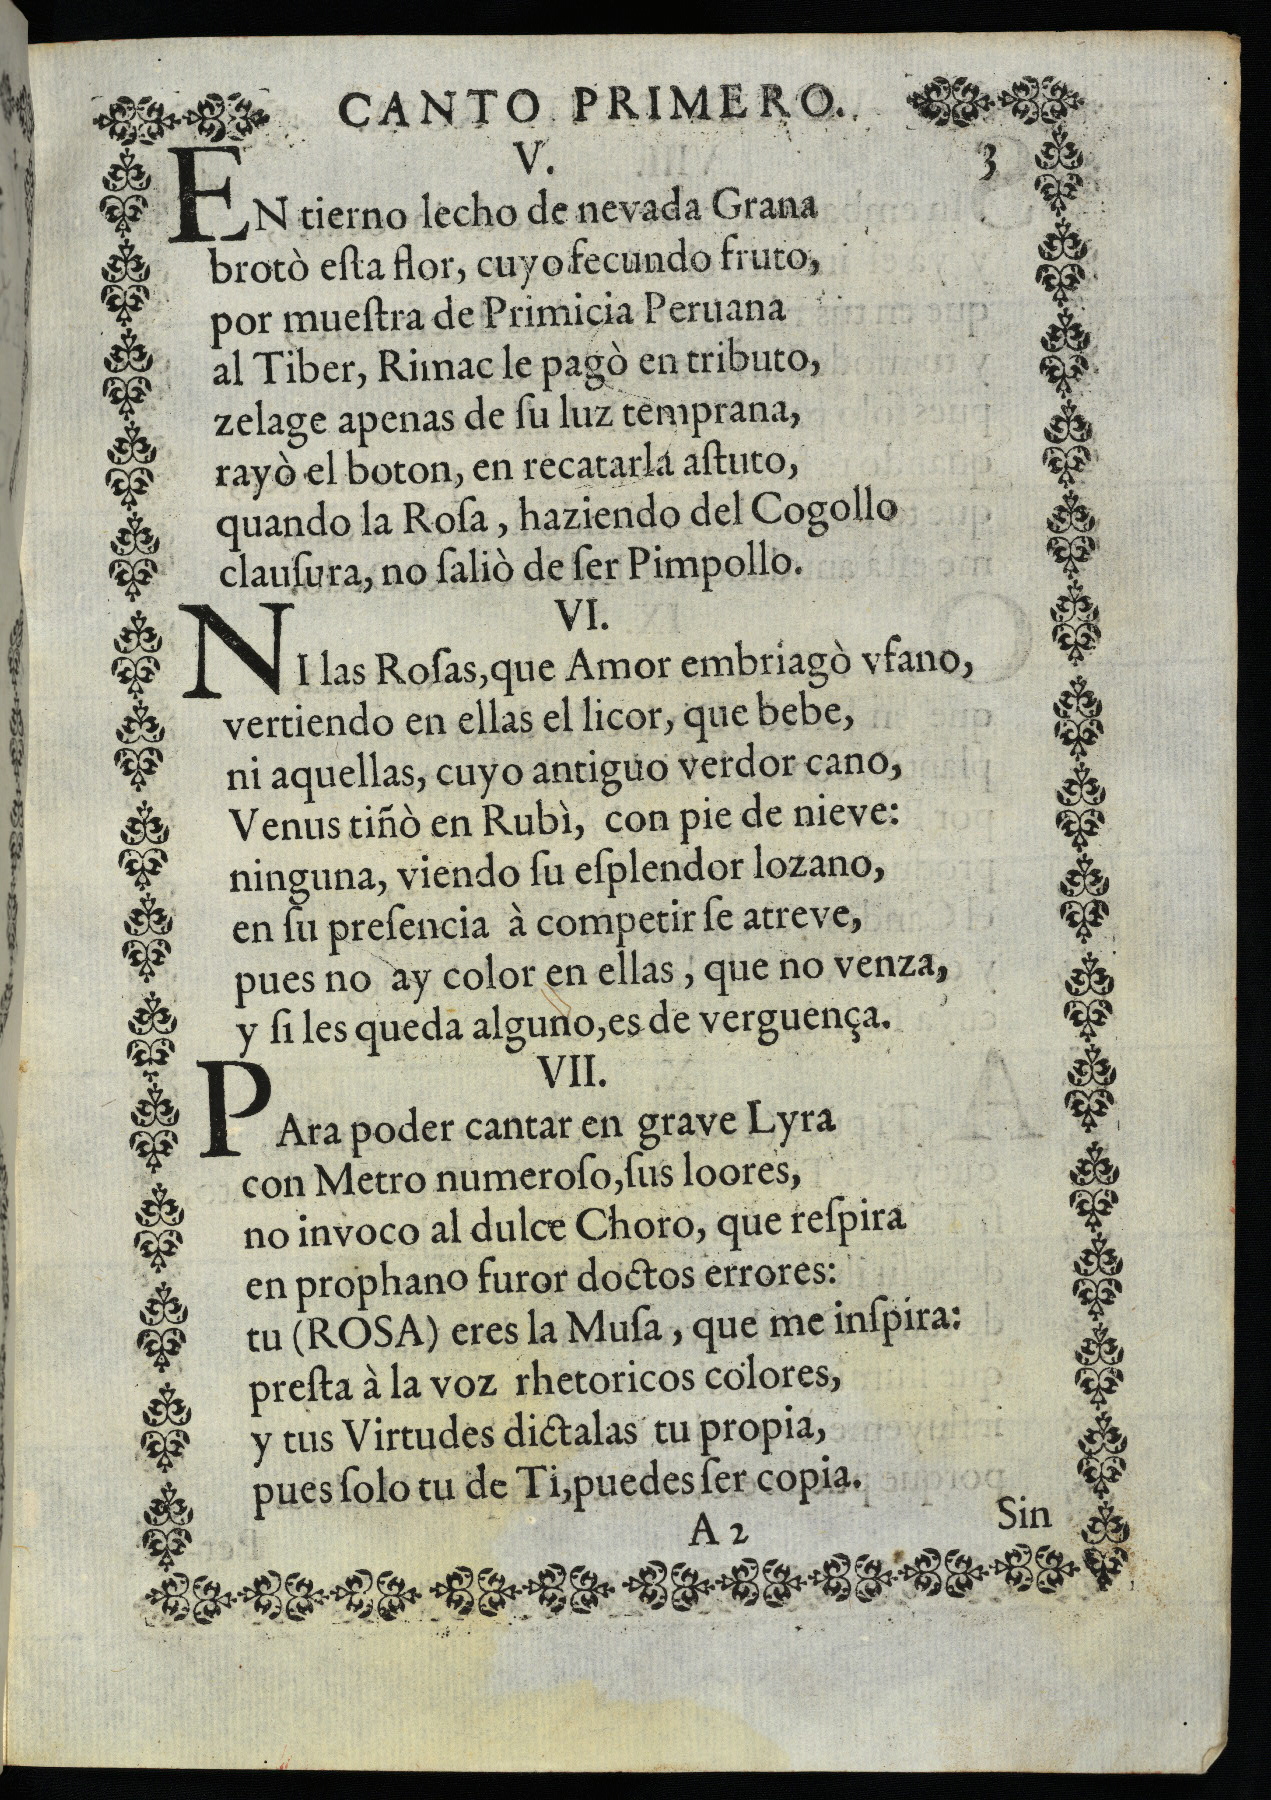 CANTO PRIMERO.
V. 3
EN tierno lecho de nevada Grana
brotò eſta flor, cuyo fecundo fruto,
por mueſtra de Primicia Peruana
al Tiber, Rimac le pagò en tributo,
zelage apenas de ſu luz temprana,
rayò el boton, en recatarla aſtuto,
quando la Roſa, haziendo del Cogollo
clauſura, no ſaliò de ſer Pimpollo.
VI.
NI las Roſas, que Amor embriagò vfano,
vertiendo en ellas el licor, que bebe,
ni aquellas, cuyo antiguo verdor cano,
Venus tiñò en Rubì, con pie de nieve:
ninguna, viendo ſu eſplendor lozano,
en ſu preſencia à competir ſe atreve,
pues no ay color en ellas, que no venza,
y ſi les queda alguno, es de verguença.
VII.
PAra poder cantar en grave Lyra
con Metro numeroſo, ſus loores,
no invoco al dulce Choro, que reſpira
en prophano furor doctos errores:
tu (ROSA) eres la Muſa, que me inſpira:
preſta à la voz rhetoricos colores,
y tus Virtudes dictalas tu propia,
pues ſolo tu de Ti, puedes ſer copia.
A 2 Sin